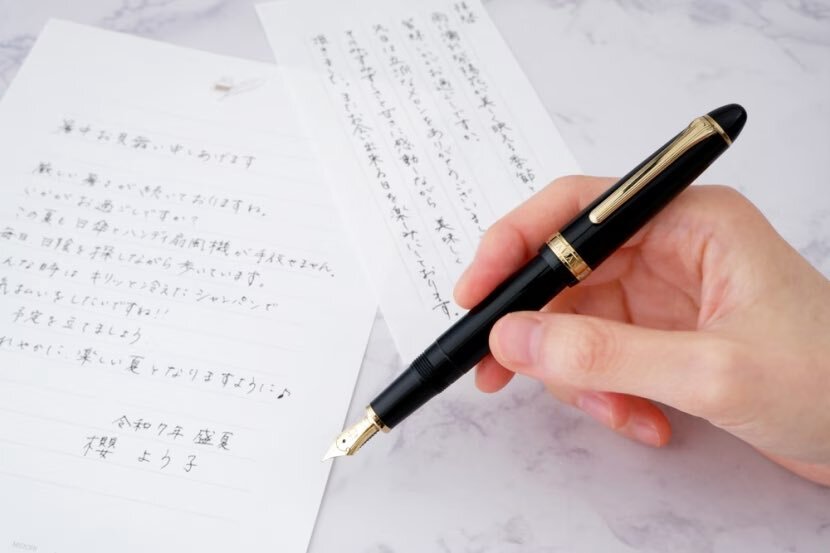 暑中お見舞い申しあげます
厳しい暑さが続いておりますね。
いかがお過ごしですか?
この夏も日傘とハンディ扇風機が手放せません。
毎日 日陰を探しながら歩いています。
んな時は キリッと冷えた シャンパンで
気払いをしたいですね!!
予定を立てましょう
れやかに、楽しい夏となりますように♪
令和7年 盛夏
櫻 よう子
MIDORI
拝啓
紫陽花が美しく映える季節、
皆様いかがお過ごしですか。
先日は立派なメロンをありがとうございま
みずみずしさと甘さに感動しながら 美味しく
頂きました。またお会い出来る日を楽しみにしております。